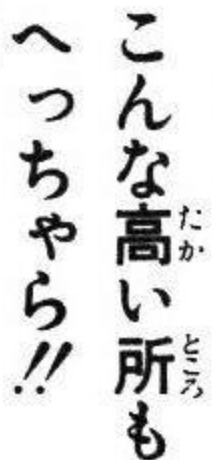 こんな高い所も
へっちゃら!!